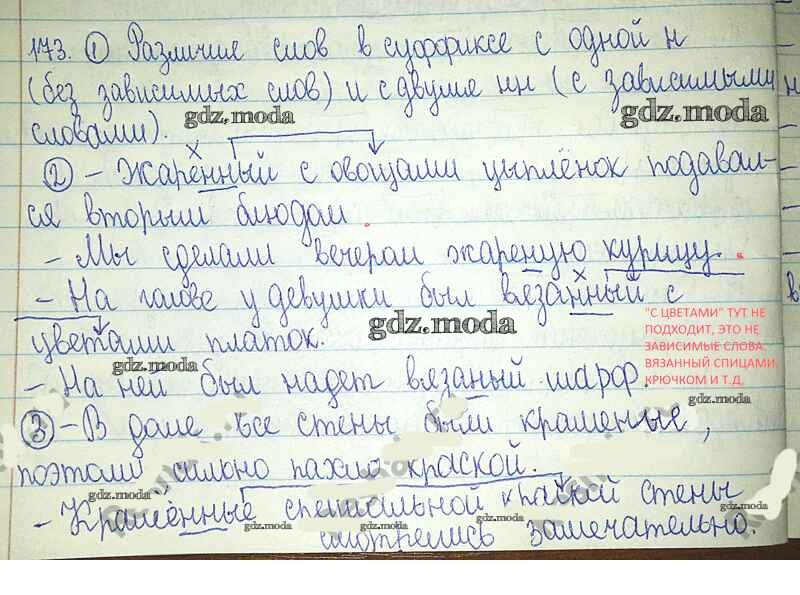 173. ① Различие слов в суффиксе с одной н
(без зависимых слов) и с двумя нн (с зависимыми
gdz.moda gdz.moda
словами).
② - Жаренный с овощами цыплёнок подавал-
ся вторым блюдом.
- Мы сделали вечером жареную курицу.
- На голове у девушки был вязанный с
цветами платок.
gdz.moda
"С ЦВЕТАМИ" ТУТ НЕ
ПОДХОДИТ, ЭТО НЕ
ЗАВИСИМЫЕ СЛОВА,
ВЯЗАННЫЙ СПИЦАМИ,
КРЮЧКОМ И Т.Д.
gdz.moda
- На ней был надет вязаный шарф.
gdz.moda
③ - В доме все стены были крашеные,
поэтому сильно пахло краской.
gdz.moda gdz.moda
- Крашенные специальной краской стены
gdz.moda gdz.moda gdz.moda
смотрелись замечательно.